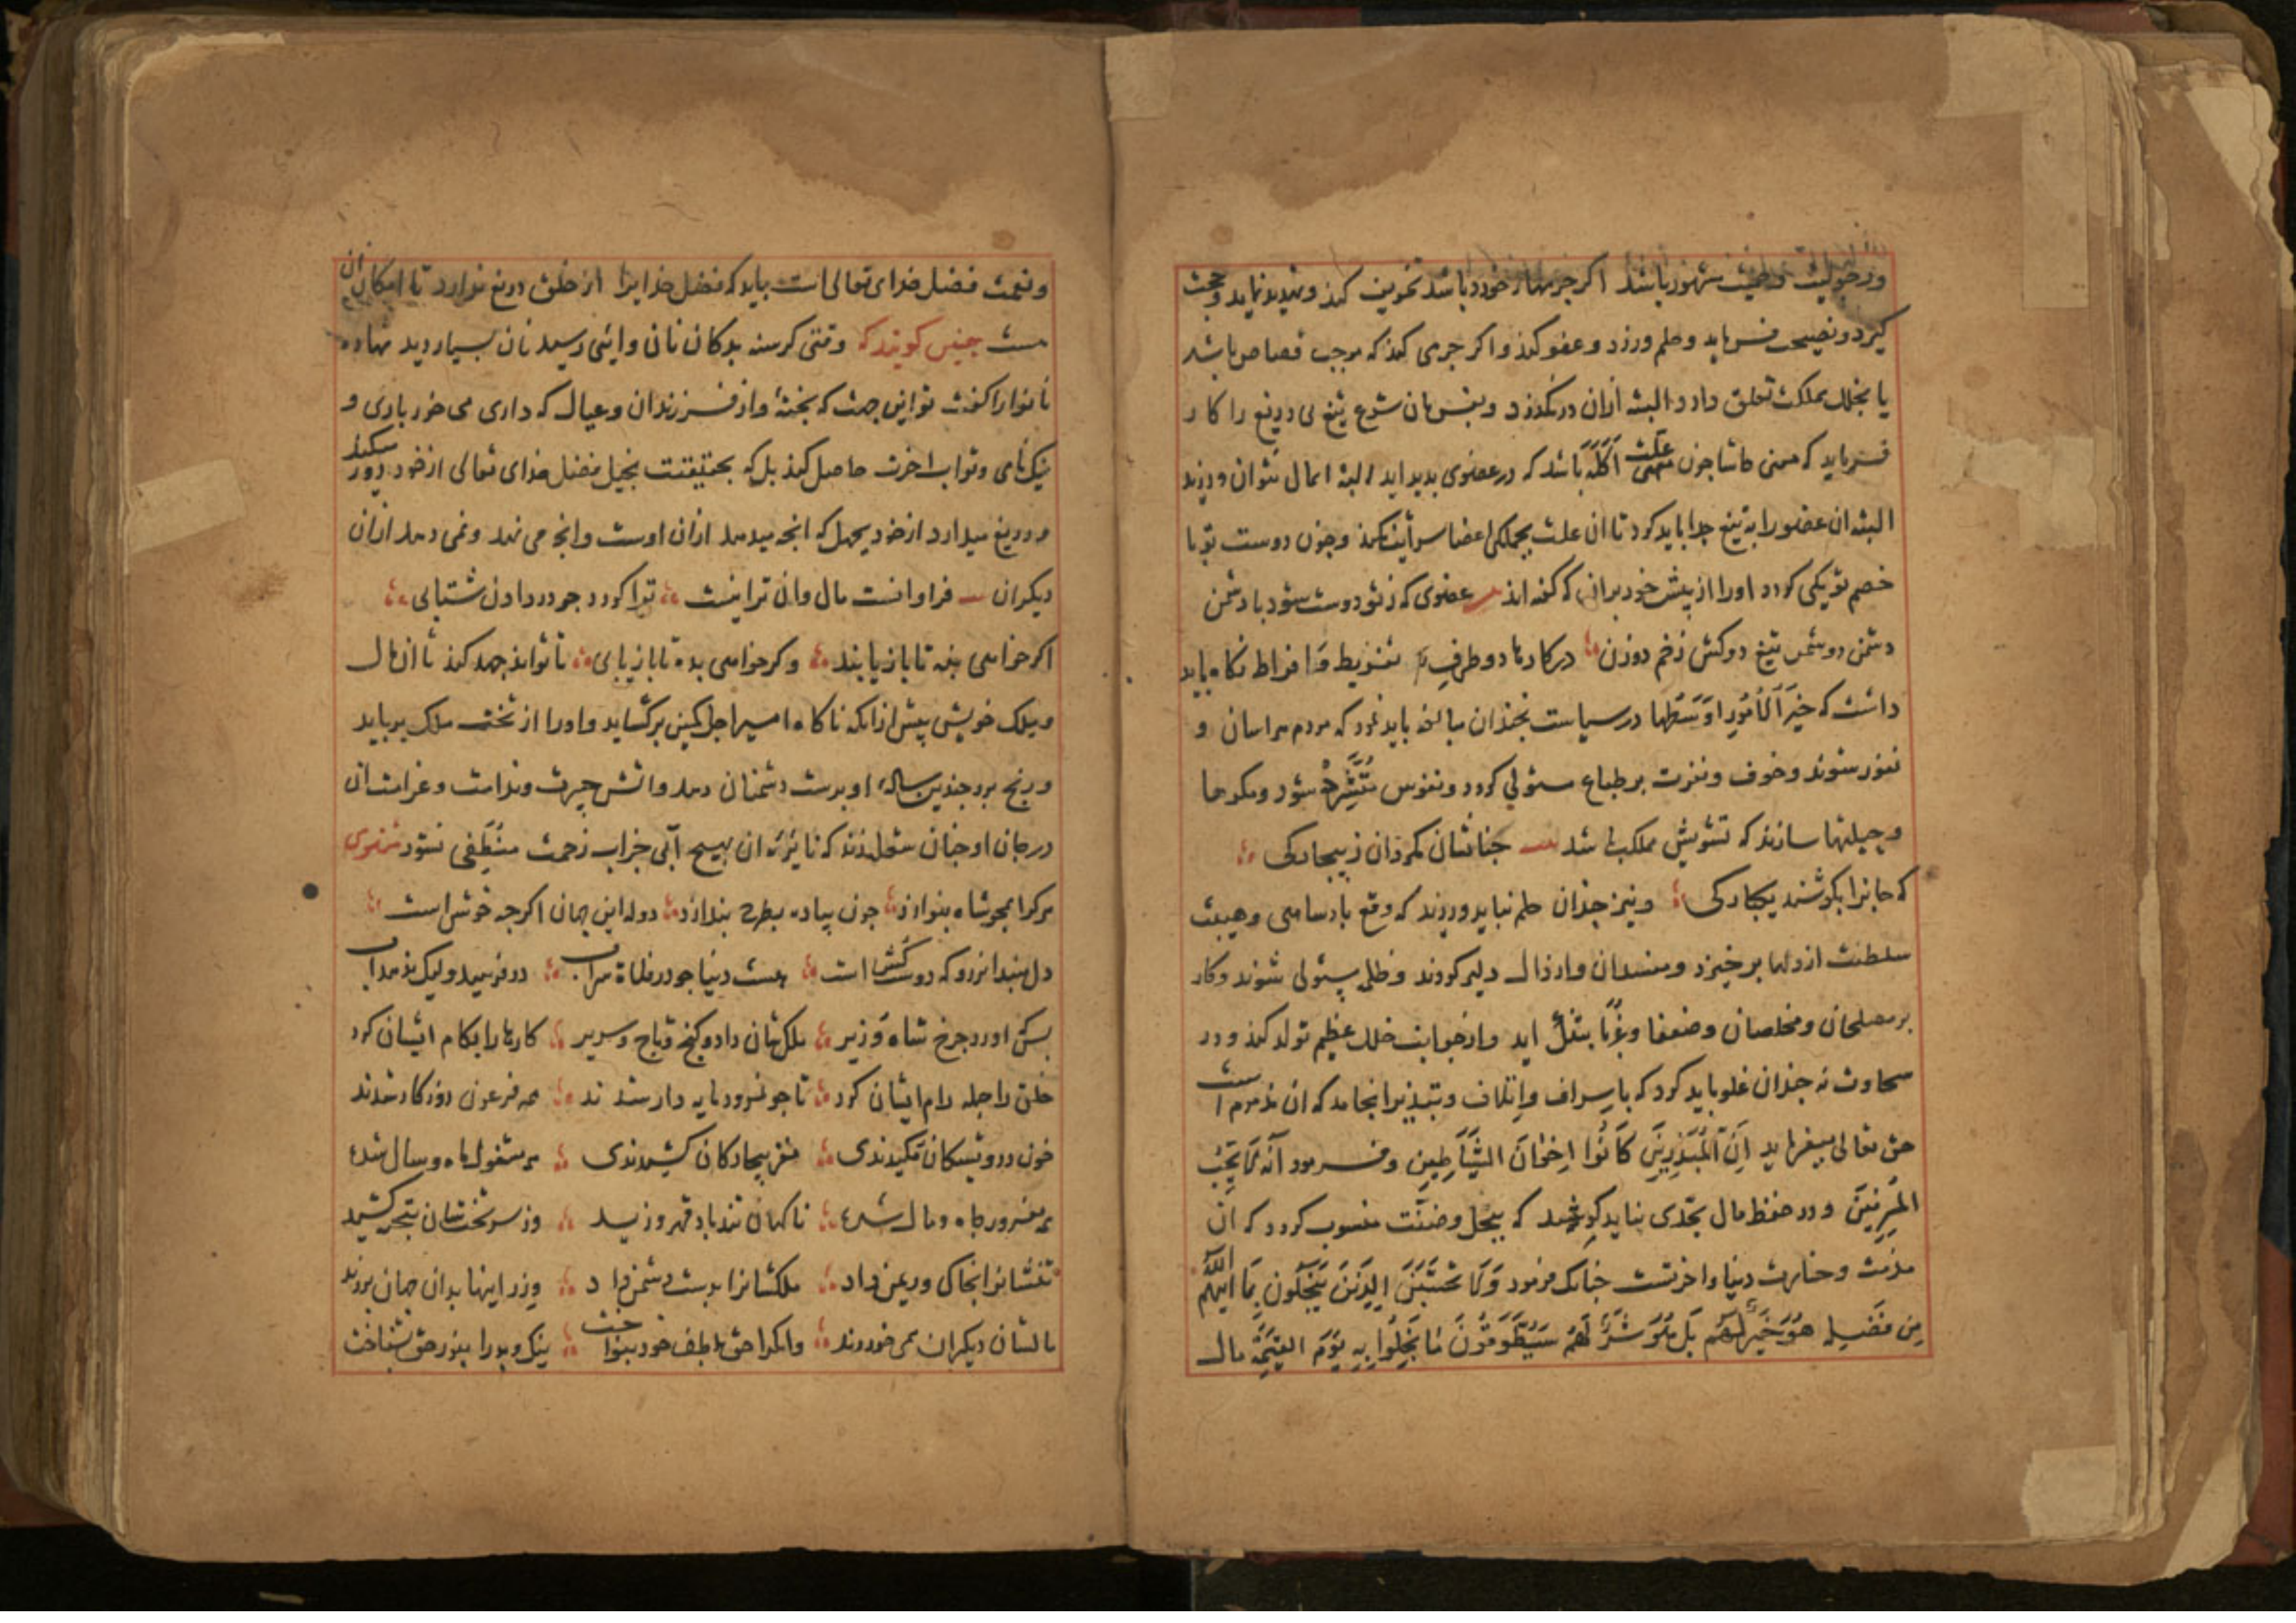 کیرد و نصیحت فرماید و حلم ورزد و عفو کند و اکر جرمی کند که موجب قصاص باشد
یا بخلل مملکت تعلق دارد البته ازان درنکذرد و بفرمان شرع تیغ بی دریغ را کار
فرماید که معنی علت آکله باشد که در عضوی بدید اید البته اهمال نتوان ورزید
البته ان عضو را به تیغ جدا باید کرد تا ان علت بجملکی اعضا سرایت نکند و چون دوست تو با
خصم تو یکی کردد او را از پیش خود بران که کفته اند عضوی که ز تو دوست شود با دشمن
دشمن دو شمر تیغ دو کش زخم دو زن در کارها دو طرف تفریط و افراط نکاه باید
داشت که خَیرُ الاُمُورِ اَوسَطُها در سیاست بجندان مبالغه باید نمود که مردم هراسان و
نفور شوند و خوف و نفرت بر طباع مستولی کردد و نفوس شود و مکرها
و حیلتها سازند که تشویش مملکت باشد جنانشان مکردان ز بیجارکی
که جانرا بکوشند یکبارکی و نیز جندان حلم نباید ورزند که وقع بادساهی و هیبت
سلطنت از دلها برخیزد و مفسدان و ارذال دلیر کردند و ظلم مستولی شوند و کار
بر مصلحان و مخلصان و ضعفا و غربا بتنک اید و ازخواست خلل عظیم تولد کند و در
سخاوت نه جندان غلو باید کرد که باسراف و اتلاف و تبذیر انجامد که ان مذموم است
حق تعالی میفرماید اِنَّ المُبَذِّرِینَ کَانُوا اِخوَانَ الشَّیَاطِینِ و فرمود اِنَّهُ لَا یُحِبُّ
المُسرِفِینَ و در حفظ مال بحدی نباید کوشید که ببخل و ضنت منسوب کردد که ان
مذمت و خسارت دنیا و اخرتست جنانک فرمود وَلَا تَحسَبَنَّ الَّذِینَ یَبخَلُونَ بِمَا اتیهُمُ اللّٰهُ
مِن فَضلِهِ هُوَ خَیرًا لَهُم بَل هُوَ شَرٌّ لَهُم سَیُطَوَّقُونَ مَا بَخِلُوا بِهِ یَومَ القِیمَةِ مال
و نعمت فضل خدای تعالی است باید که فضل خدایرا از خلق دریغ ندارد تا امکان ان
هست جنین کویند که وقتی کرسنه بدکان نان وائی رسید نان بسیار دید نهاده
نانوا را کفت تو این بهت که بخته و از فرزندان و عیال که داری می خور باری و
نیک نامی و ثواب اخرت حاصل کند بل که بحقیقت بخیل فضل خدای تعالی از خود دور میکند
و دریغ میدارد از خود بجهل که انجه میدهد ازان اوست و انجه می نهد و نمی دهد ازان
دیکران فراوانست مال وان ترا نیست ترا کردد جو در دادن شتابی
اکر خواهی بنه تا باز یابند و کر خواهی بده تا باز یابی تا تواند جهد کند تا ان مال
و ملک خویش پیش ازانکه ناکاه اسیر اجل کمین برکشاید و او را از تخت ملک برباید
و رنج برد جندین ساله او بدست دشمنان دهد و اتش حیرت و ندامت و غرامت ان
در جان او جنان شعله زند که نایره ان بهیج آبی جزاب زحمت منطفی نشود مثنوی
هرکرا همجو شاه بنوازد جون پیاده بطرح بندازد دوله این جهان اکرجه خوش است
دل مبند اندرو که دوست کش است هست دنیا جو در فلاة سراب در فریبد ولیک ندهد آب
بس که اورد جرخ شاه و وزیر ملکشان داد و کنج و تاج و سریر کارها را بکام ایشان کرد
خلق را جمله رام ایشان کرد تا جو نمرود مایه دار شدند همه فرعون روزکار شدند
خون درویشکان مکیدندی مغز بیجارکان کشیدندی همه مشغول ماه و سال شده
همه مغرور جاه و مال شده ناکهان تندباد قهر وزید وز سر تختشان بتخته کشید
تنشانرا بخاک و ریمن داد ملکشانرا بدست دشمن داد وزر اینها بدان جهان بردند
مالشان دیکران همی خوردند وانکرا حق بلطف خود بنواخت نیک و بد را بنور حق بشناخت